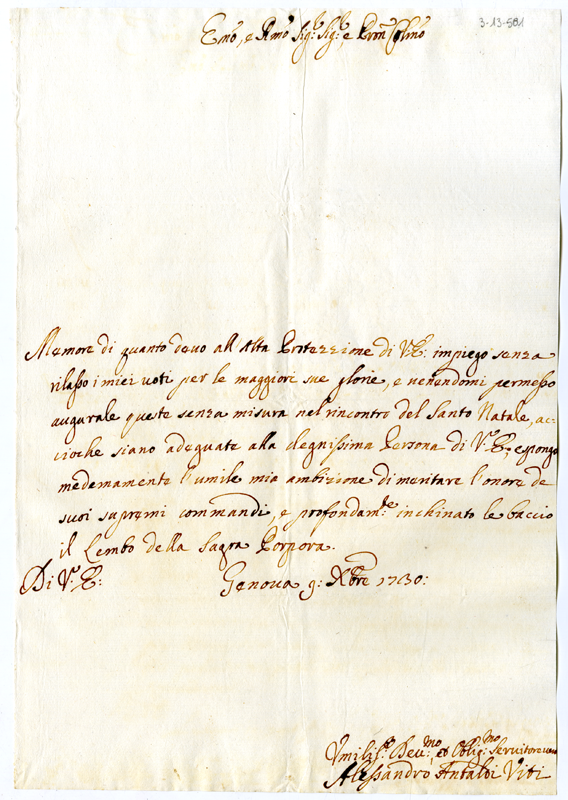 Emo, e Rmo Sig.r Sig.r, e Pron Colmo
3-13-501
Memore di quanto devo all'Alta Protezzione di V.E. impiego senza
rilasso i miei voti per le maggiore sue glorie, e venendomi permesso
augurale queste senza misura nel rincontro del Santo Natale, ac=
cioche siano adeguate alla degnissima Persona di V.E. espongo
medemamente l'umile mia ambizione di meritare l'onore de
suoi supremi commandi, e profondam.te inchinato le baccio
il Lembo della Sagra Porpora.
Di V.E: Genova 9: Xbre 1730:
Umiliss.o Dev.mo, et Oblig.mo Servitore vero
Alessandro Antaldi Viti